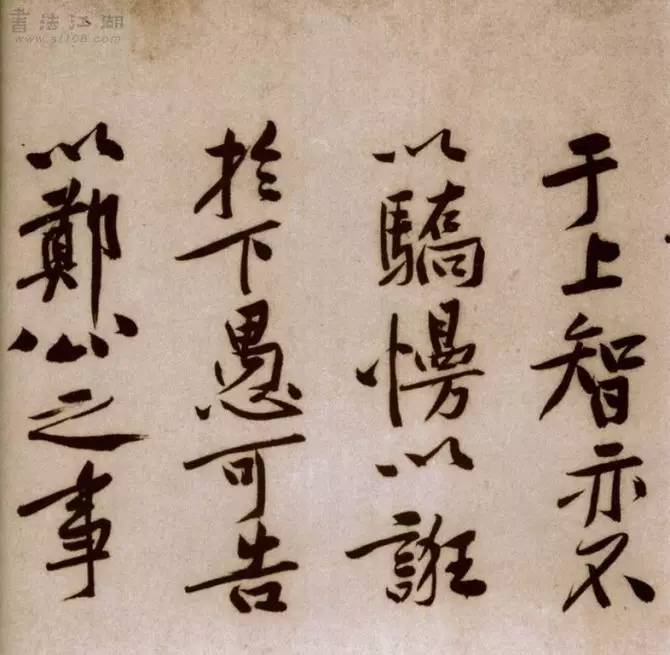 書法江湖
www.sf108.com
于上智亦不
以驕慢以誑
於下愚可告
以鄭公之事